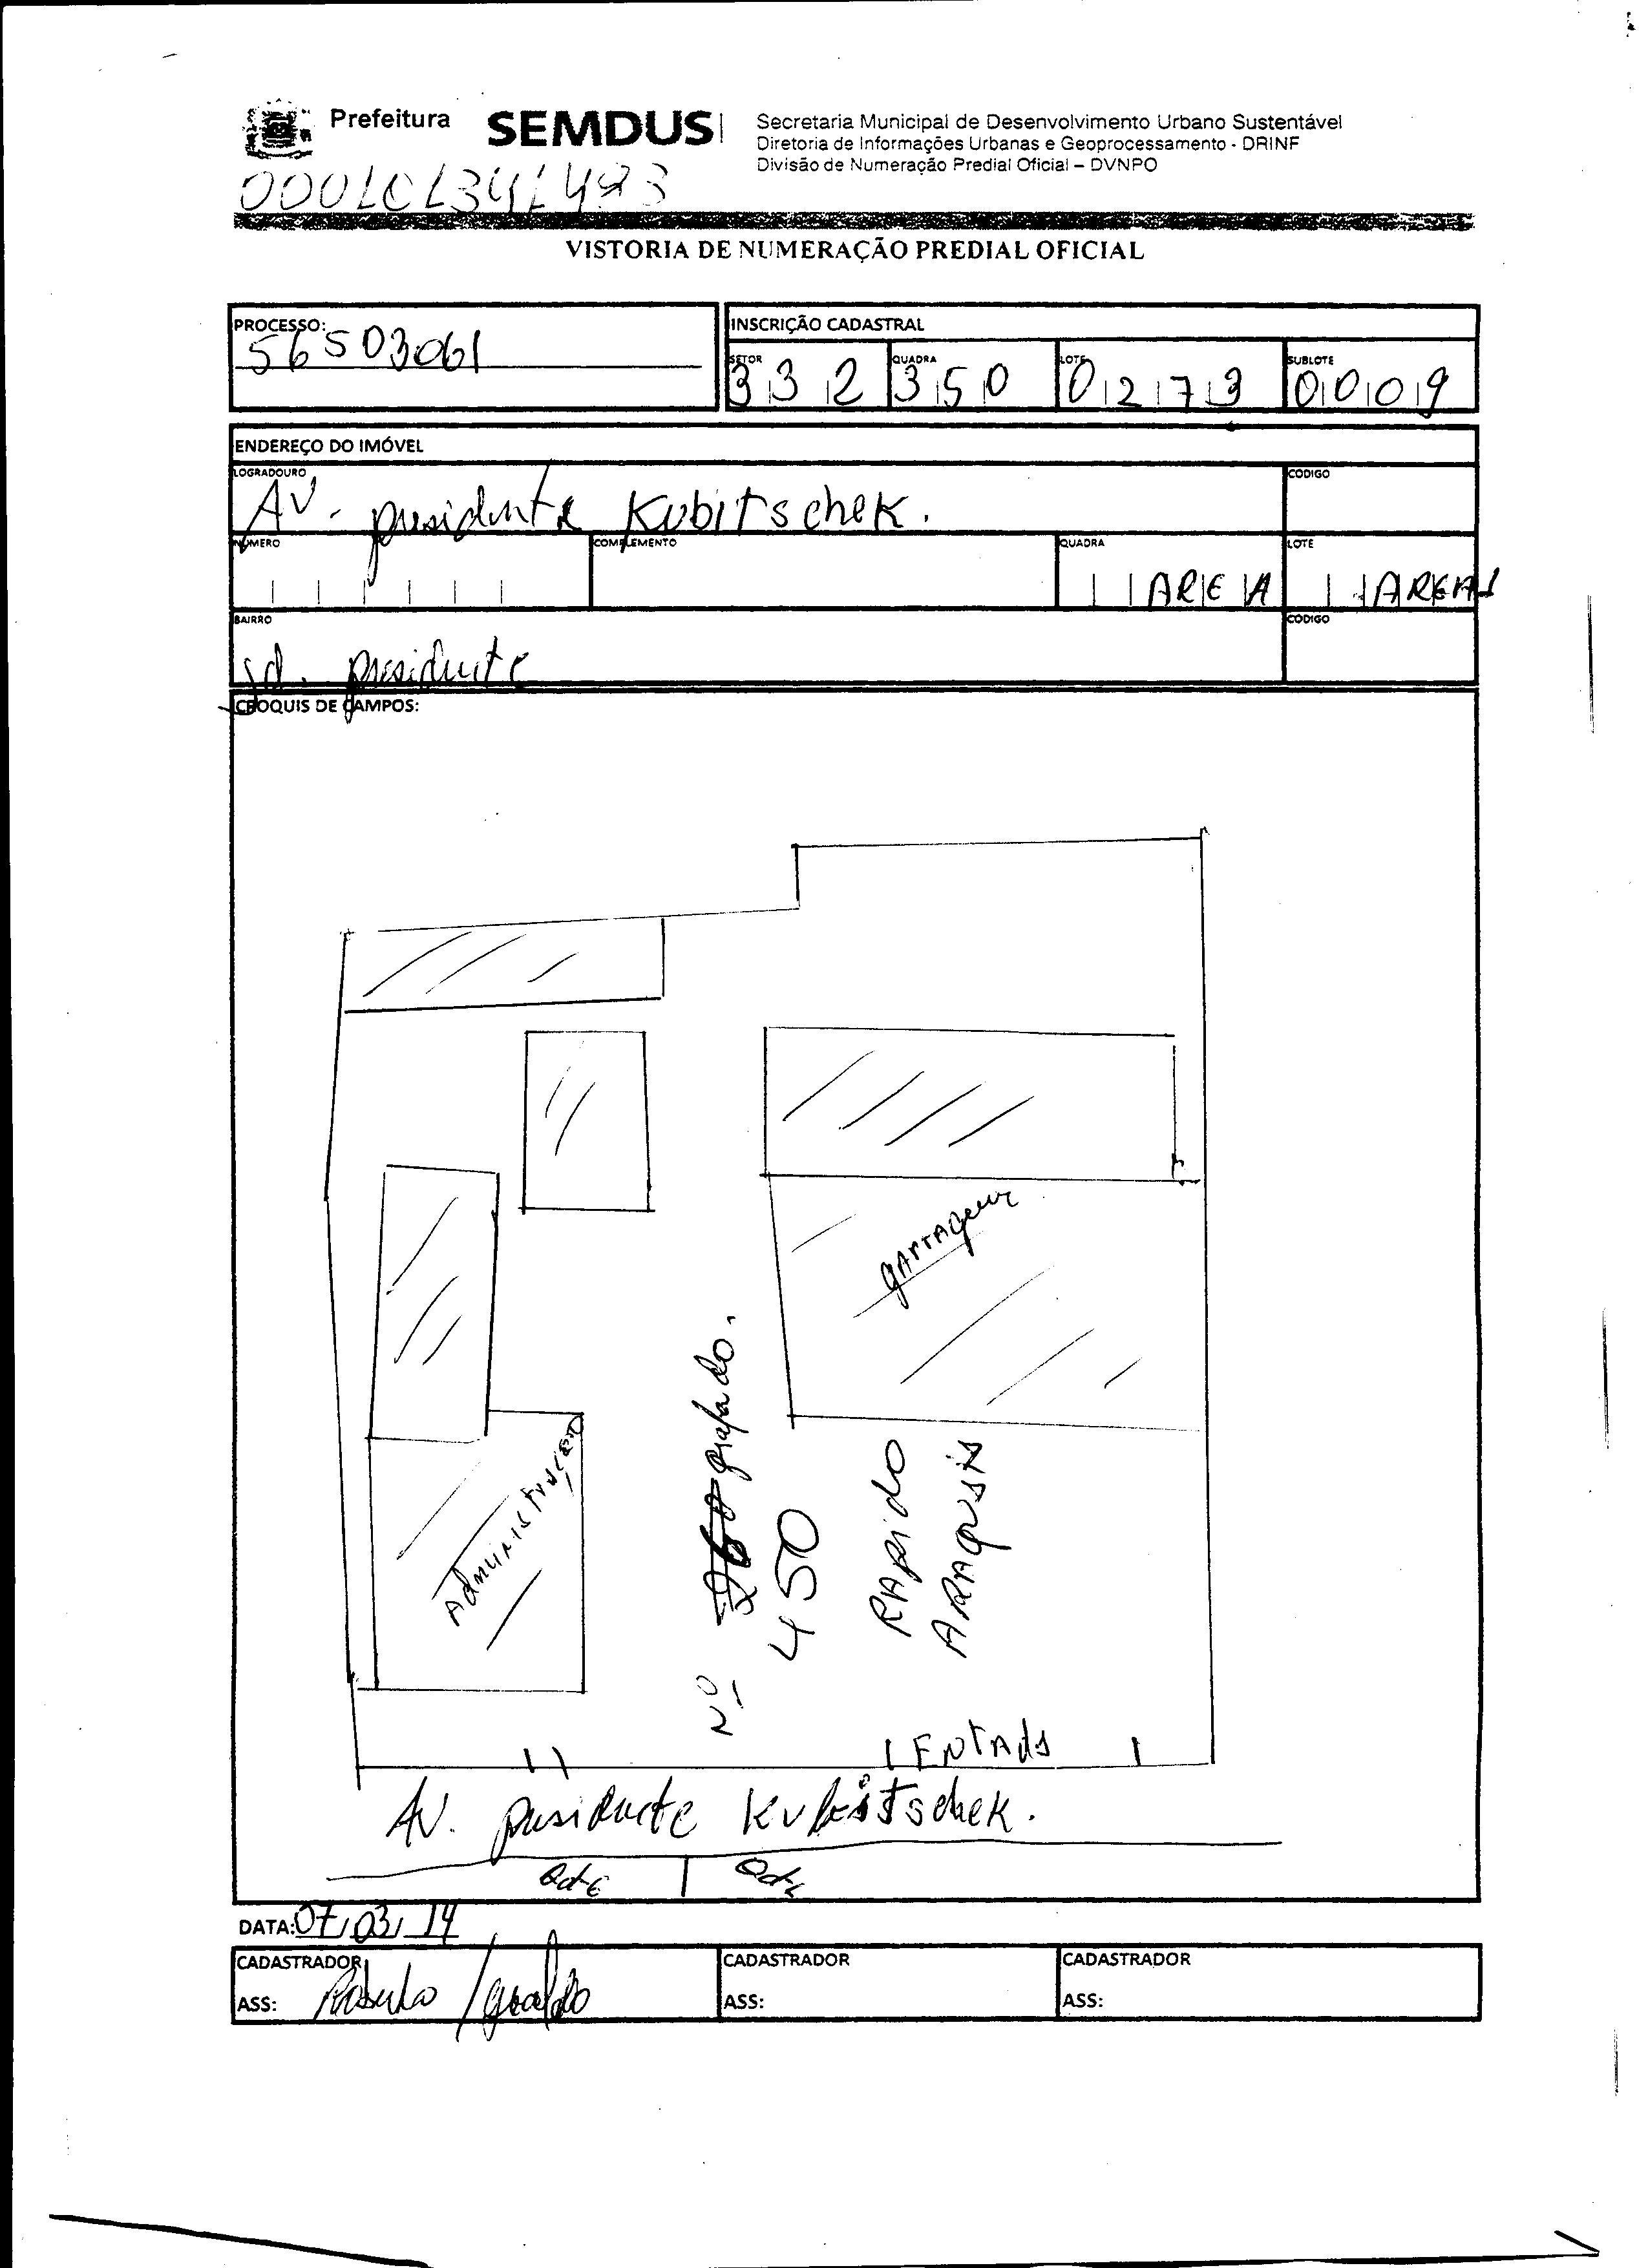 Prefeitura SEMDUS
Secretaria Municipal de Desenvolvimento Urbano Sustentável
Diretoria de Informações Urbanas e Geoprocessamento - DRINF
Divisão de Numeração Predial Oficial – DVNPO
VISTORIA DE NUMERAÇÃO PREDIAL OFICIAL
PROCESSO: 56503061
INSCRIÇÃO CADASTRAL
SETOR 332 QUADRA 350 LOTE 0279 SUBLOTE 0009
ENDEREÇO DO IMÓVEL
LOGRADOURO CODIGO
AV. presidente Kubitschek.
NÚMERO COMPLEMENTO QUADRA LOTE
AREA AREA1
BAIRRO CODIGO
jd. presidente
CROQUIS DE CAMPOS:
Administração
Nº
grafado.
450
RAPIDO
ARAGUAIA
ENTADA
AV. presidente Kubitschek.
DATA: 07/03/14
CADASTRADOR CADASTRADOR CADASTRADOR
ASS: Roberto / Geraldo ASS: ASS: